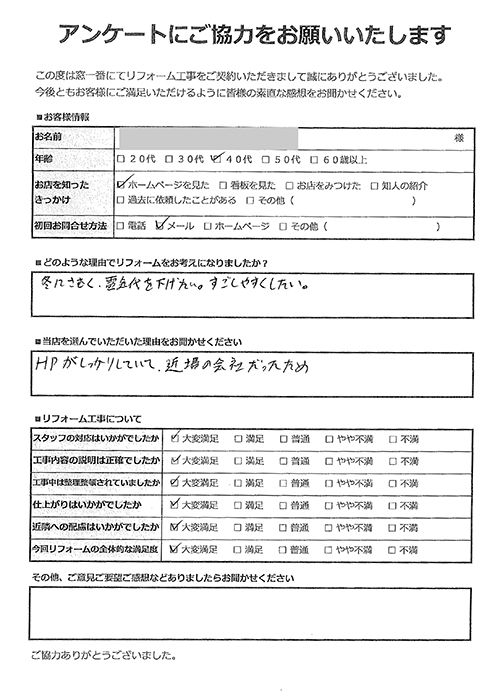 アンケートにご協力をお願いいたします
この度は窓一番にてリフォーム工事をご契約いただきまして誠にありがとうございました。
今後ともお客様にご満足いただけるように皆様の素直な感想をお聞かせください。
■お客様情報
お名前 様
年齢 □20代 □30代 ☑40代 □50代 □60歳以上
お店を知った ☑ホームページを見た □看板を見た □お店をみつけた □知人の紹介
きっかけ □過去に依頼したことがある □その他（ ）
初回お問合せ方法 □電話 ☑メール □ホームページ □その他（ ）
■どのような理由でリフォームをお考えになりましたか？
冬にさむく、電気代を下げたい。すごしやすくしたい。
■当店を選んでいただいた理由をお聞かせください
HPがしっかりしていて、近場の会社だったため
■リフォーム工事について
スタッフの対応はいかがでしたか ☑大変満足 □満足 □普通 □やや不満 □不満
工事内容の説明は正確でしたか ☑大変満足 □満足 □普通 □やや不満 □不満
工事中は整理整頓されていましたか ☑大変満足 □満足 □普通 □やや不満 □不満
仕上がりはいかがでしたか ☑大変満足 □満足 □普通 □やや不満 □不満
近隣への配慮はいかがでしたか ☑大変満足 □満足 □普通 □やや不満 □不満
今回リフォームの全体的な満足度 ☑大変満足 □満足 □普通 □やや不満 □不満
その他、ご意見ご要望ご感想などありましたらお聞かせください
ご協力ありがとうございました。